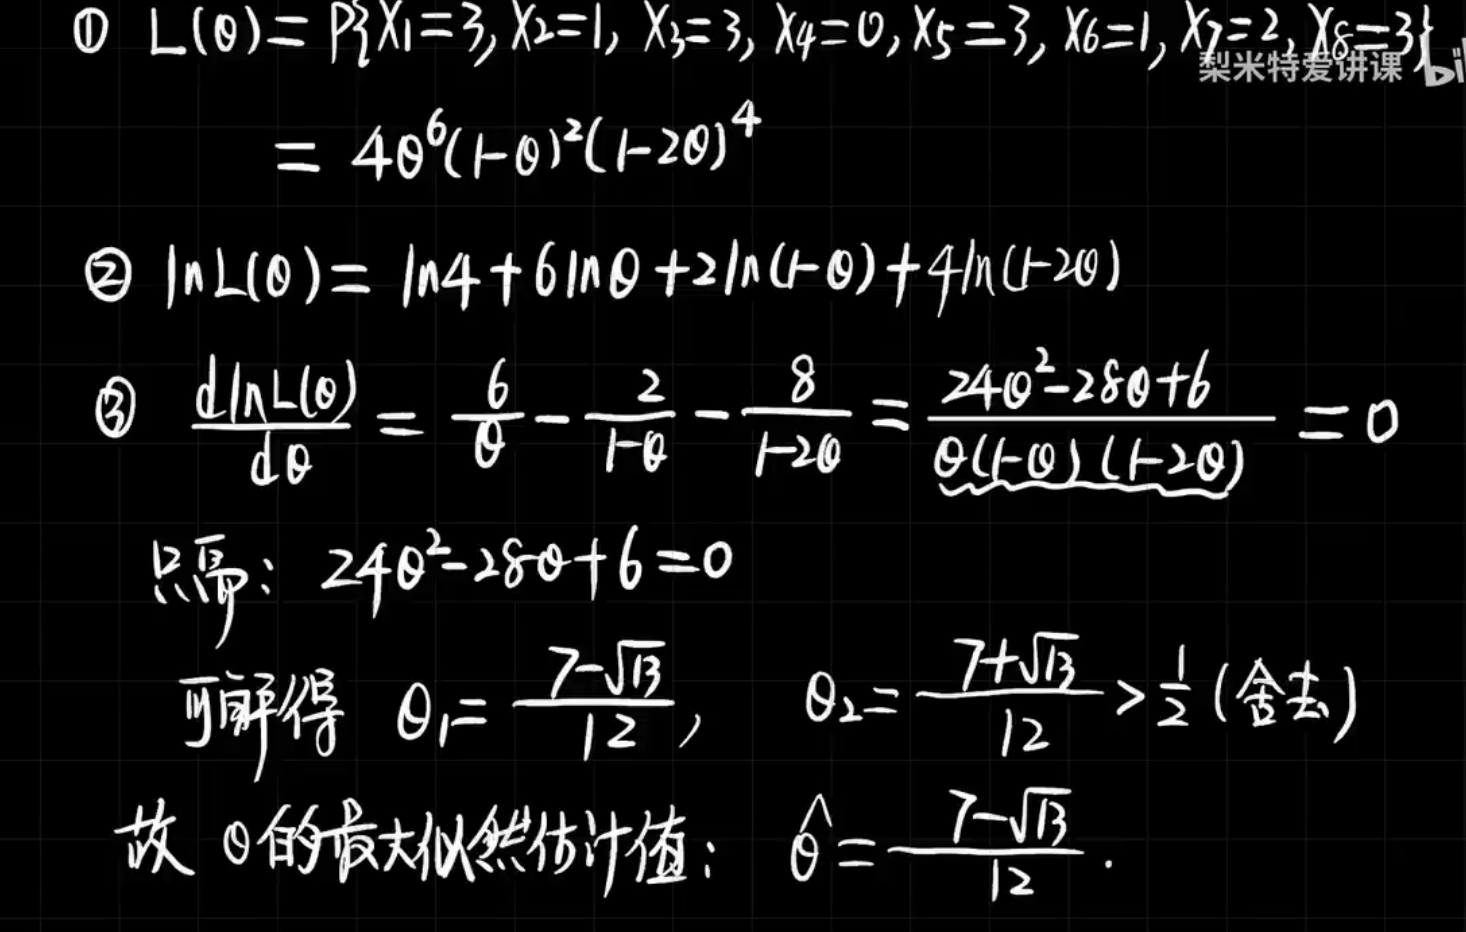 ① L(θ) = P{X₁=3, X₂=1, X₃=3, X₄=0, X₅=3, X₆=1, X₇=2, X₈=3}
梨米特爱讲课 bil
= 4θ⁶(1-θ)²(1-2θ)⁴
② lnL(θ) = ln4 + 6lnθ + 2ln(1-θ) + 4ln(1-2θ)
③ dlnL(θ)/dθ = 6/θ - 2/(1-θ) - 8/(1-2θ) = (24θ²-28θ+6)/(θ(1-θ)(1-2θ)) = 0
只需: 24θ²-28θ+6=0
可解得 θ₁ = (7-√13)/12, θ₂ = (7+√13)/12 > 1/2 (舍去)
故 θ的最大似然估计值: θ̂ = (7-√13)/12.